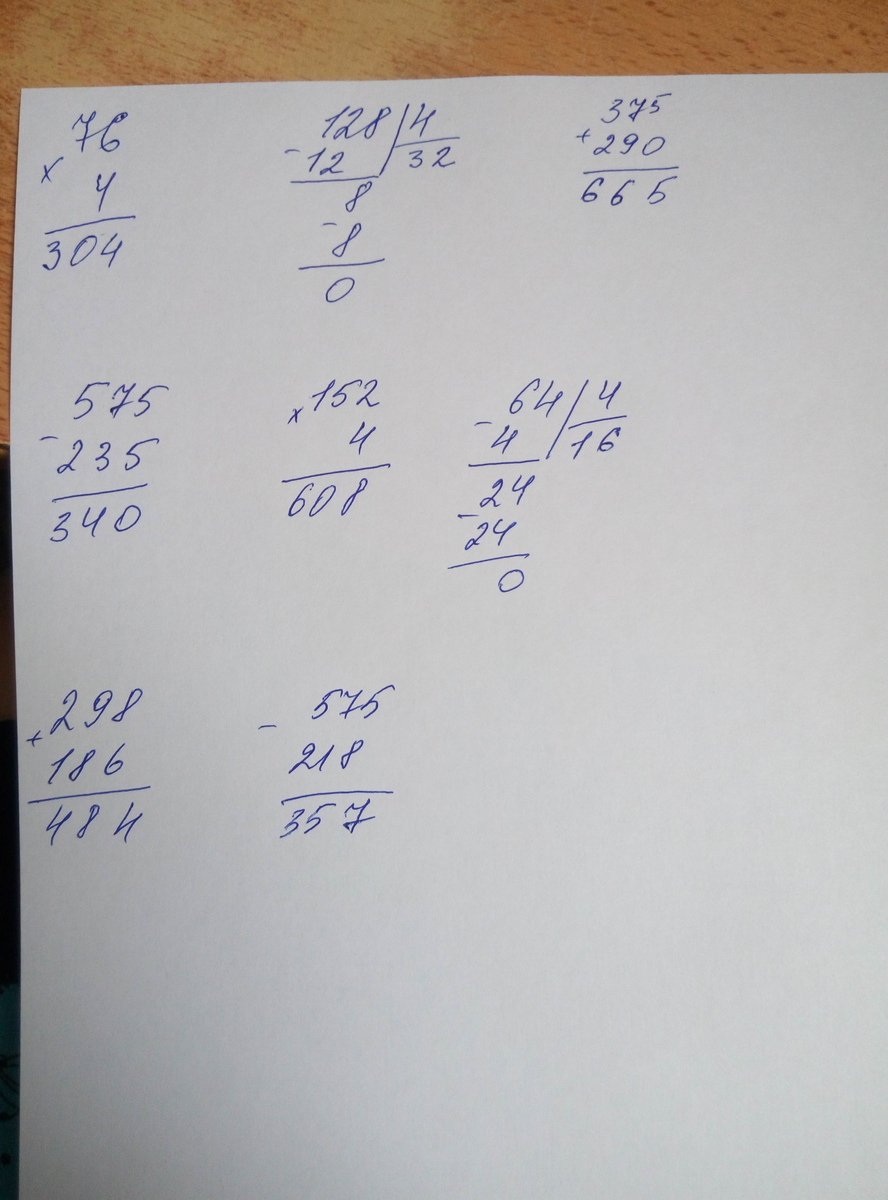 76
× 4
304
128 | 4
- 12 32
8
- 8
0
375
+ 290
665
575
- 235
340
× 152
4
608
- 64 | 4
4 16
24
- 24
0
+ 298
186
484
- 575
218
357